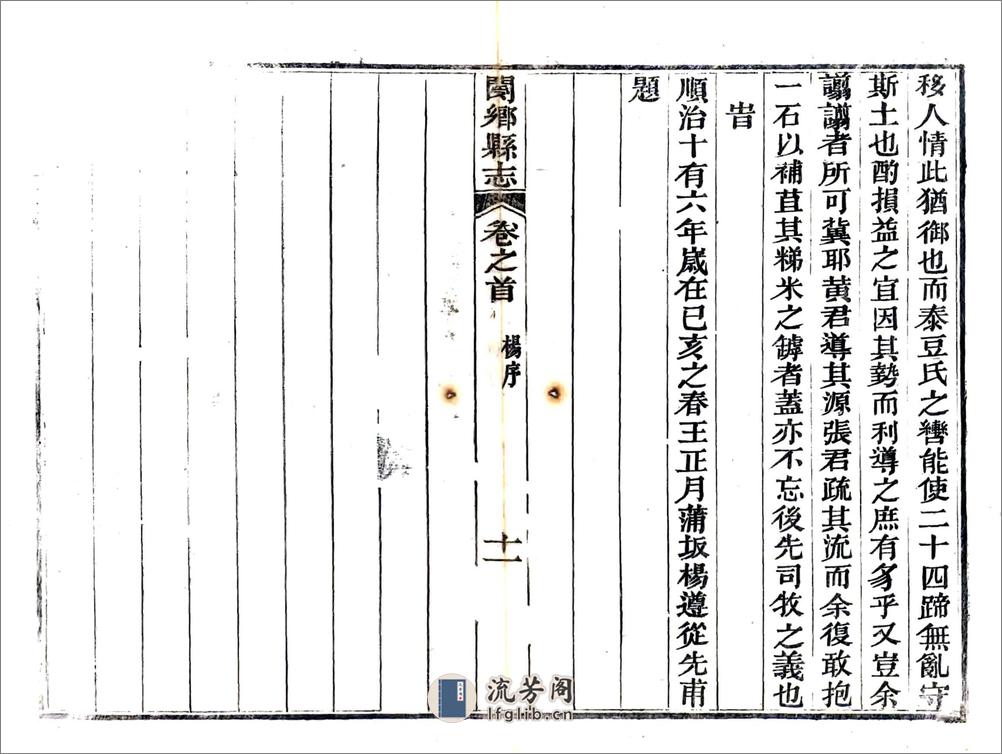 移人情此猶御也而泰豆氏之轡能使二十四蹄無亂守
斯土也酌損益之宜因其勢而利導之庶有豸乎又豈余
謭謭者所可冀耶黃君導其源張君疏其流而余復敢抱
一石以補苴其稊米之罅者蓋亦不忘後先司牧之義也
旹
順治十有六年歲在已亥之春王正月蒲坂楊遵從先甫
題
閿鄉縣志
卷之首
楊序
十一
流芳阁
lfglib.cn